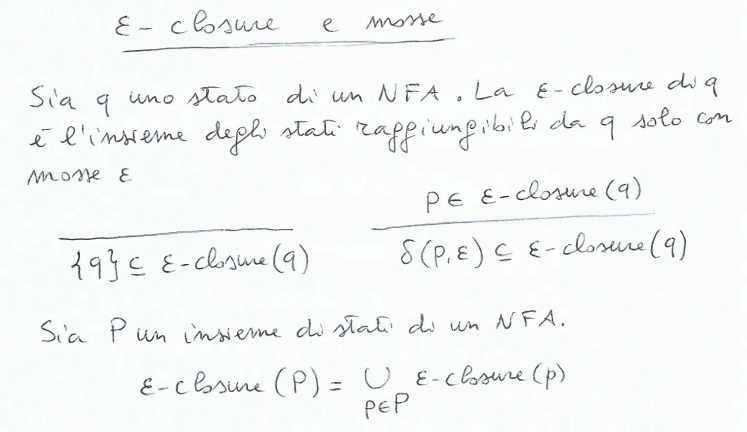 ε- closure e mosse
Sia q uno stato di un NFA. La ε-closure di q
è l'insieme degli stati raggiungibili da q solo con
mosse ε
p ∈ ε-closure(q)
{q} ⊆ ε-closure(q)
δ(p,ε) ⊆ ε-closure(q)
Sia P un insieme di stati di un NFA.
ε-closure (P) = ∪ ε-closure(p)
p∈P